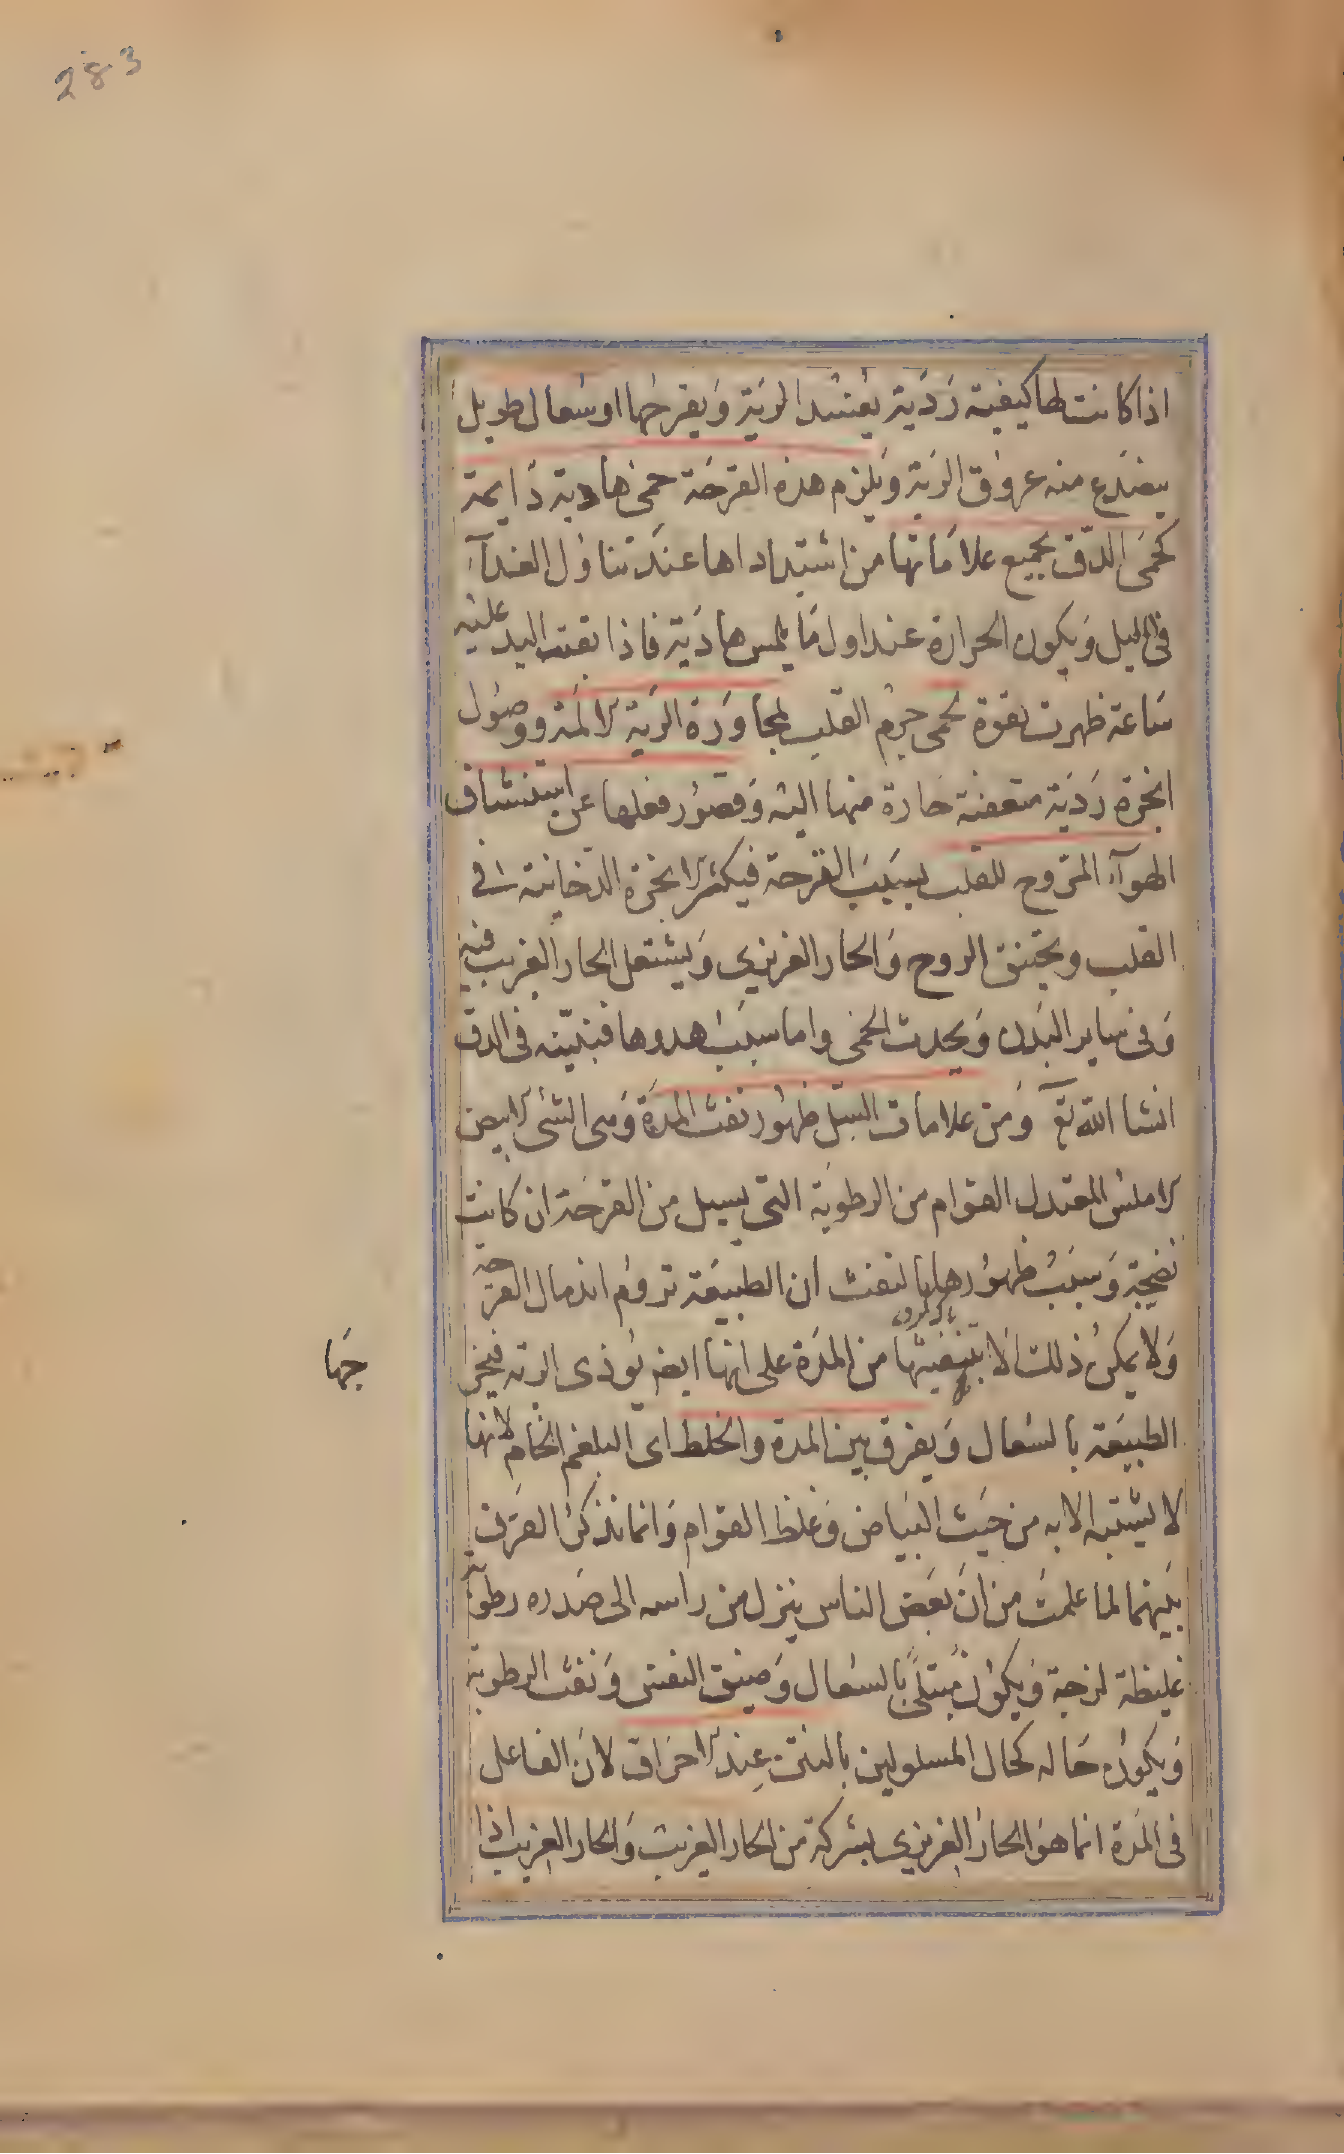 283
اذا كانت لها كيفية ردية يفسد الرية ويقرحها او سعال طويل
ينصدع منه عروق الرية ويلزم هذه القرحة حمى هادية دايمة
كحمى الدق بجميع علاماتها من اشتدادها عند تناول الغذآء
فى الليل ويكون الحرارة عند اول ما يلمس هادية فاذا بقيت اليد عليه
ساعة ظهرت بقوة يحمى جرم القلب لمجاورة الرية الالمة ووصول
ابخرة ردية متعفنة حارة منها اليه وقصور فعلها عن استنشاق
الهوآء المتروح للقلب بسبب القرحة فيكثر الابخرة الدخانية فى
القلب ويختنق الروح والحار الغريزى ويشتعل الحار الغريب فيه
وفى ساير البدن ويحدث الحمى واما سبب هدوها فنبينه فى الدق
انشا الله تع ومن علامات السل ظهور نفث المدة وهى الشئ الابيض
الاملس المعتدل القوام من الرطوبة التى يسيل من القرحة ان كانت
نضيجة وسبب ظهورها بالنفث ان الطبيعة تروم اندمال القرحة
ولا يمكن ذلك الا بتنقيتها من المدة على انها ايضا يوذى الرية فيخر
جها
الطبيعة بالسعال ويفرق بين المدة والخلط اى البلغم الخام لانها
لا يشتبه الا به من حيث البياض وغلظ القوام وانما نذكر الفرق
بينهما لما علمت من ان بعض الناس ينزل من راسه الى صدره رطوبة
غليظة لزجة ويكون مبتلى بالسعال وضيق النفس ونفث الرطوبة
ويكون حاله كحال المسلولين بالنتن عند الاحراق لان الفاعل
فى المدة انما هو الحار الغريزى بشركة من الحار الغريب والحار الغريب اذا